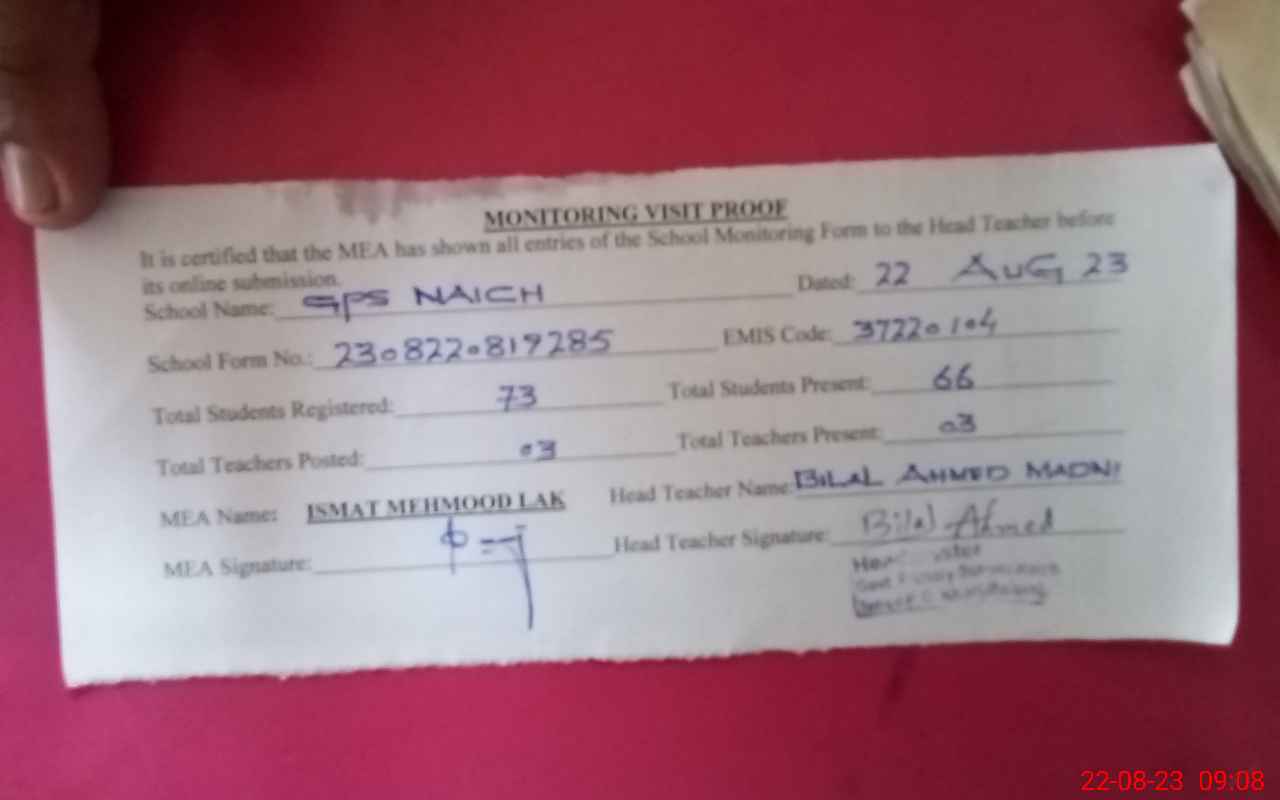 MONITORING VISIT PROOF
It is certified that the MEA has shown all entries of the School Monitoring Form to the Head Teacher before
its online submission.
School Name: GPS NAICH Dated: 22 AUG 23
School Form No.: 2308220819285 EMIS Code: 37220104
Total Students Registered: 73 Total Students Present: 66
Total Teachers Posted: 03 Total Teachers Present: 03
MEA Name: ISMAT MEHMOOD LAK Head Teacher Name: BILAL AHMED MADNI
MEA Signature: Head Teacher Signature: Bilal Ahmed
22-08-23 09:08